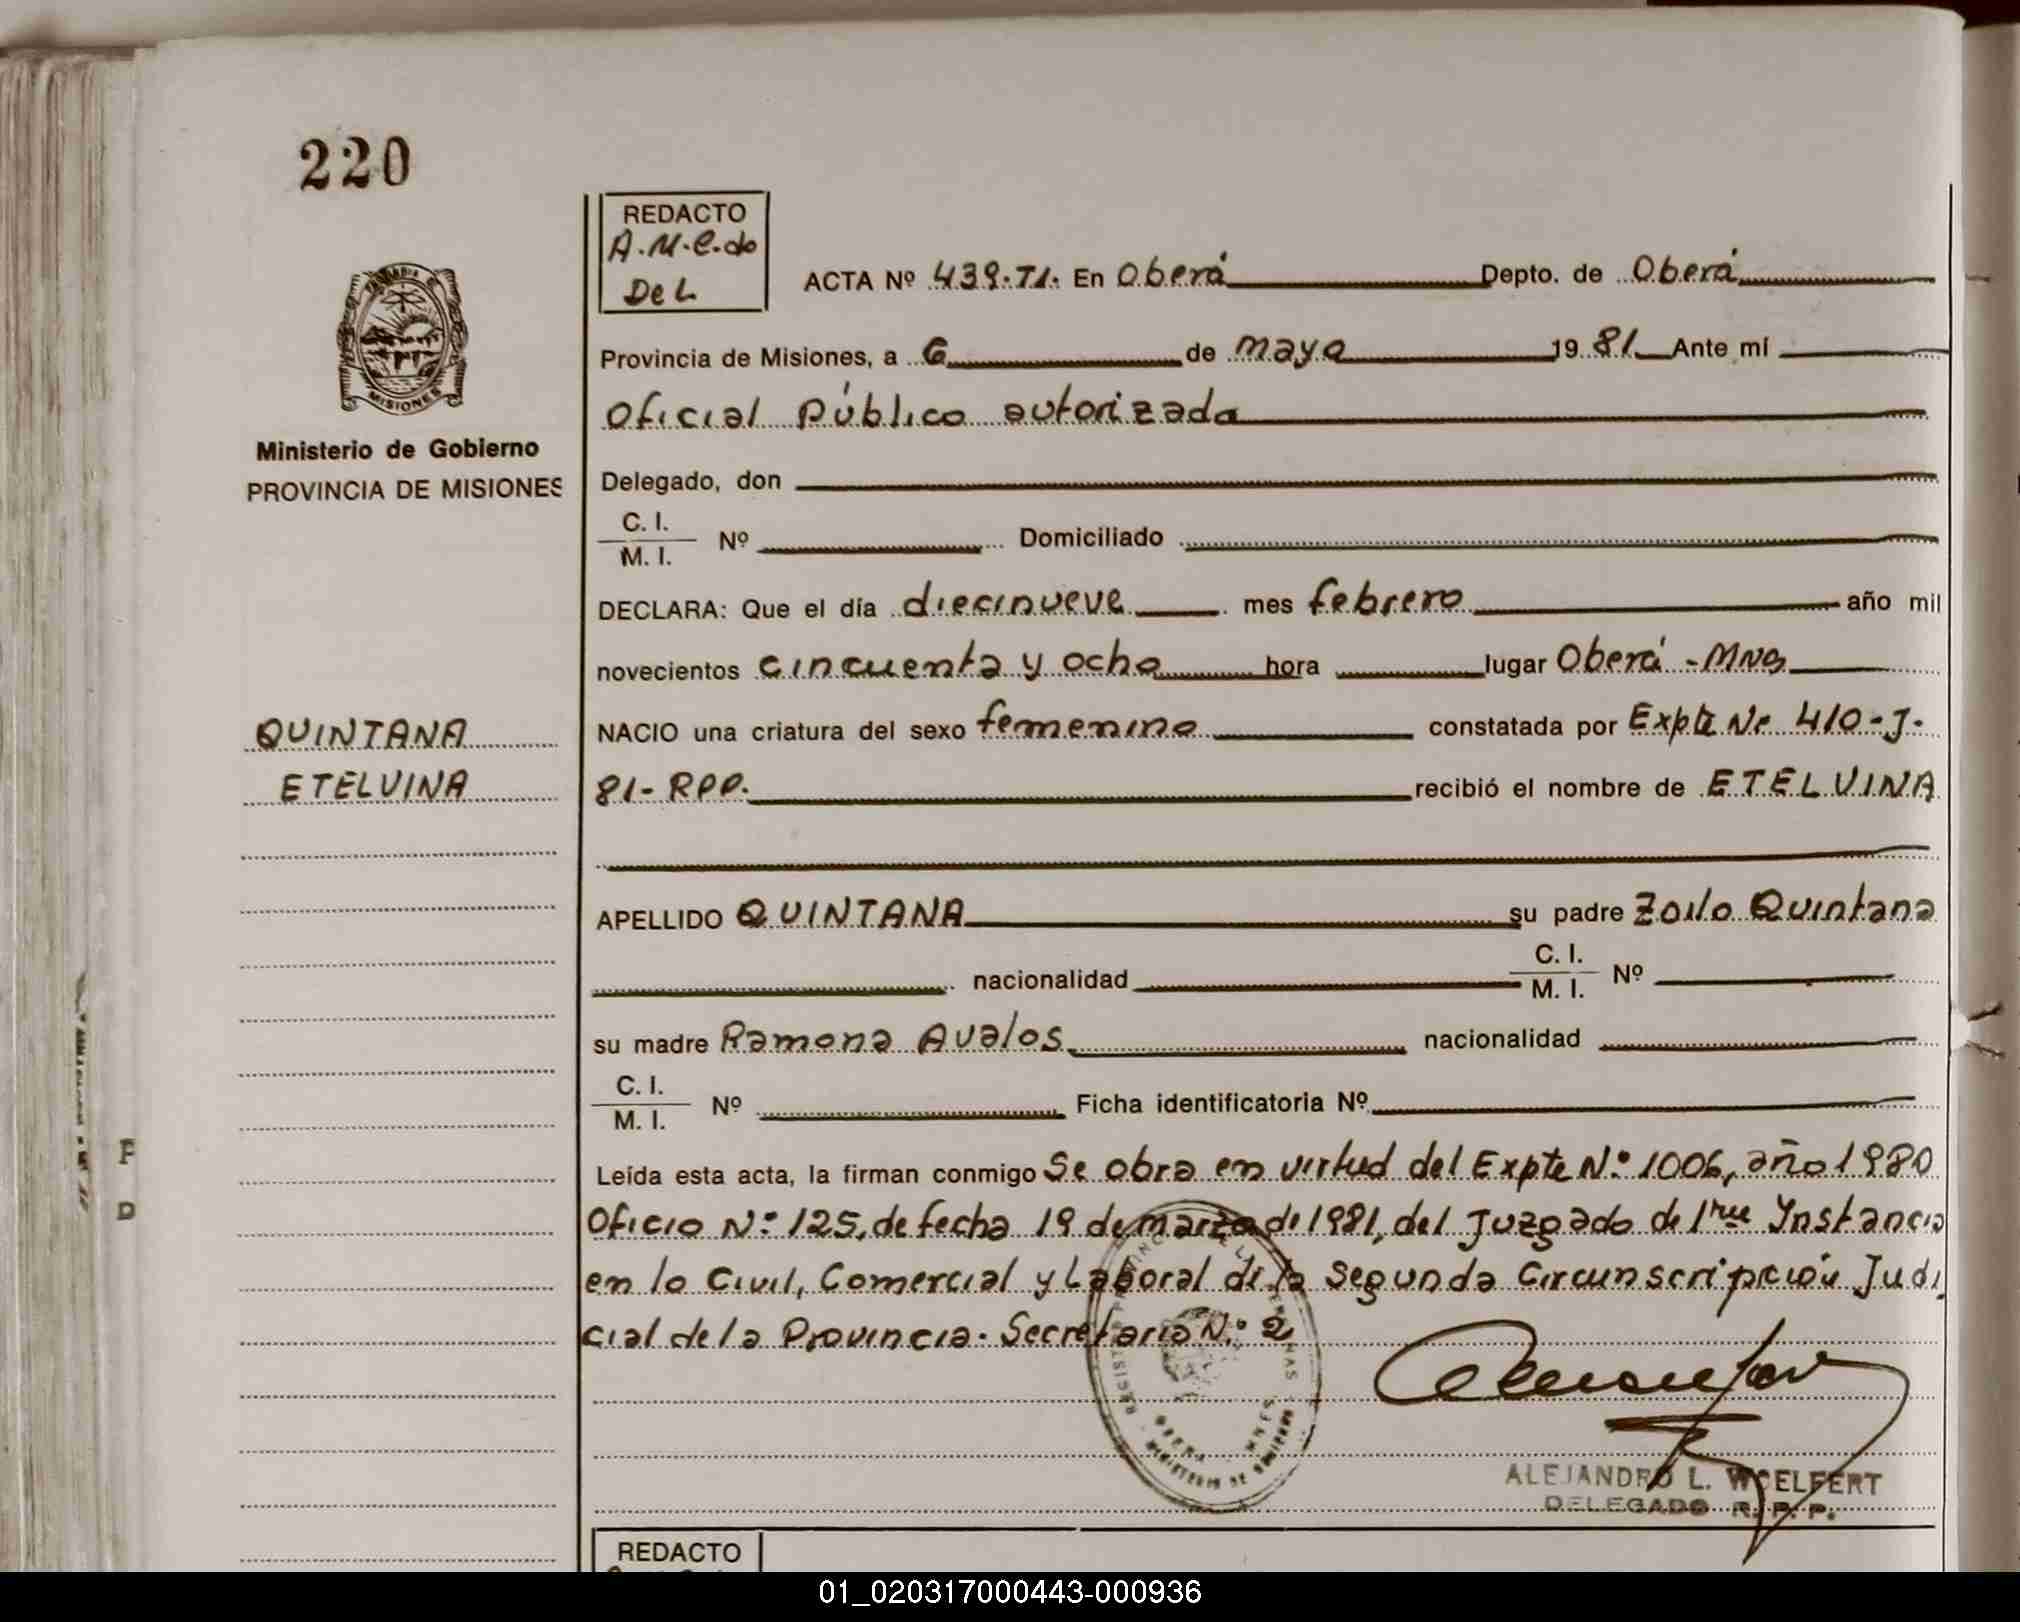 220
REDACTO
A.M.C.do
DeL
ACTA Nº 439.TI. En Oberá Depto. de Oberá
Provincia de Misiones, a 6 de mayo 1981 Ante mí
Oficial Público autorizado
MISIONES
Ministerio de Gobierno
PROVINCIA DE MISIONES
Delegado, don
C. I.
M. I. Nº Domiciliado
DECLARA: Que el día diecinueve mes febrero año mil
novecientos cincuenta y ocho hora lugar Oberá - Mnes
QUINTANA
ETELVINA
NACIO una criatura del sexo femenino constatada por Expte Nº 410-J-
81-RPP. recibió el nombre de ETELVINA
APELLIDO QUINTANA su padre Zoilo Quintana
nacionalidad C. I.
M. I. Nº
su madre Ramona Avalos nacionalidad
C. I.
M. I. Nº Ficha identificatoria Nº
Leída esta acta, la firman conmigo Se obra en virtud del Expte N.º 1006, año 1980
Oficio N.º 125, de fecha 19 de marzo de 1981, del Juzgado de 1ra Ynstancia
en lo Civil, Comercial y Laboral de la Segunda Circunscripción Judi
cial de la Provincia. Secretaria N.º 2
ALEJANDRO L. WOELFERT
DELEGADO R. P. P.
REDACTO
01_020317000443-000936